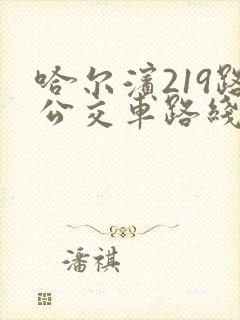 哈尔滨219路
公交车路线
潘祺